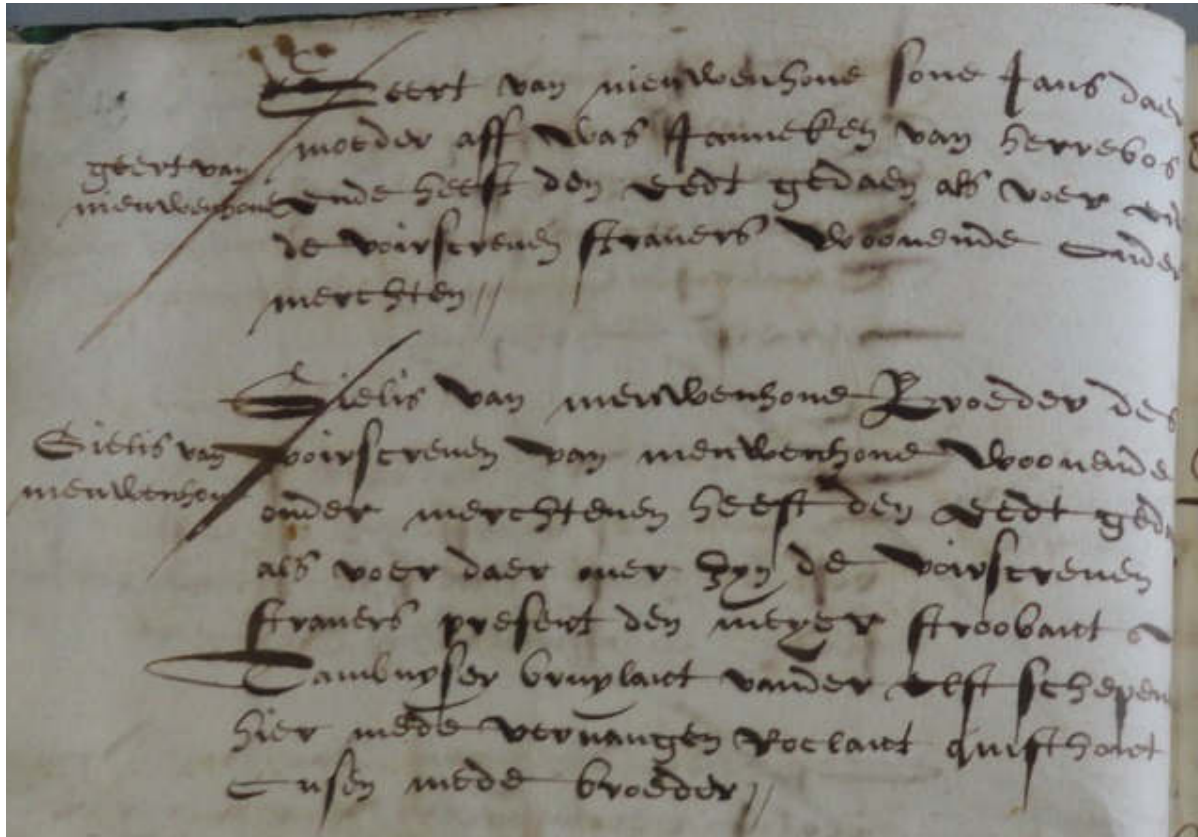 Geert van nieuwenhove sone Jans daer
moeder aff was Janneken van herrebos
geert van
nieuwenhove
ende heeft den eedt gedaen als voer
de voirscreven stravers woonende onder
merchten //
Gielis van nieuwenhove broeder des
Gielis van
nieuwenhove
voirscreven van nieuwenhove woonende
onder merchtenen heeft den eedt geda
als voer daer over zyn de voirscreven
stravers present den meyer stroobant
Tambuyser bruylant vander elst schepen
hier mede vervangen Roelant
mede broeder //